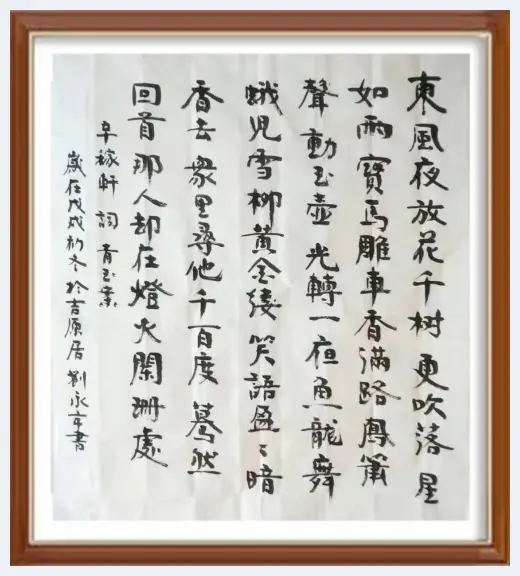 東風夜放花千树更吹落星
如雨寶馬雕車香满路鳳簫
聲動玉壺光轉一夜魚龍舞
蛾児雪柳黄金缕笑語盈〻暗
香去衆里尋他千百度驀然
回首那人却在燈火闌珊處
辛稼軒詞青玉案
歲在戊戌初冬於吉原居劉永亭書